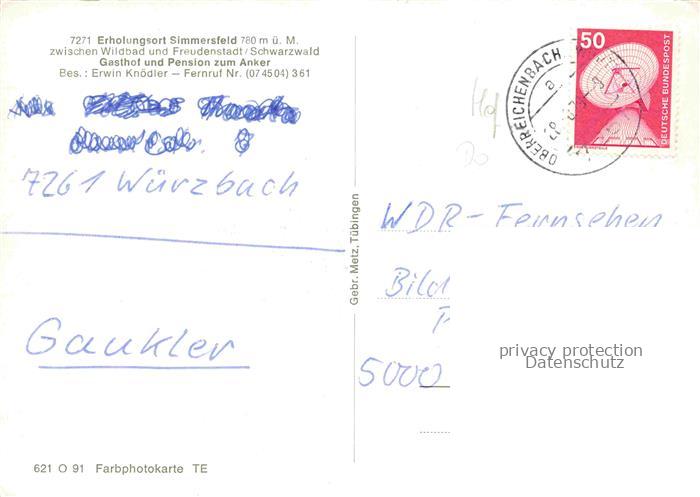 7271 Erholungsort Simmersfeld 780 m ü. M.
zwischen Wildbad und Freudenstadt/Schwarzwald
Gasthof und Pension zum Anker
Bes.: Erwin Knödler — Fernruf Nr. (07 45 04) 361
7261 Würzbach
Gaukler
621 O 91 Farbphotokarte TE
Gebr. Metz, Tübingen
OBERREICHENBACH
50
DEUTSCHE BUNDESPOST
WDR - Fernsehen
Bild
5000
privacy protection
Datenschutz